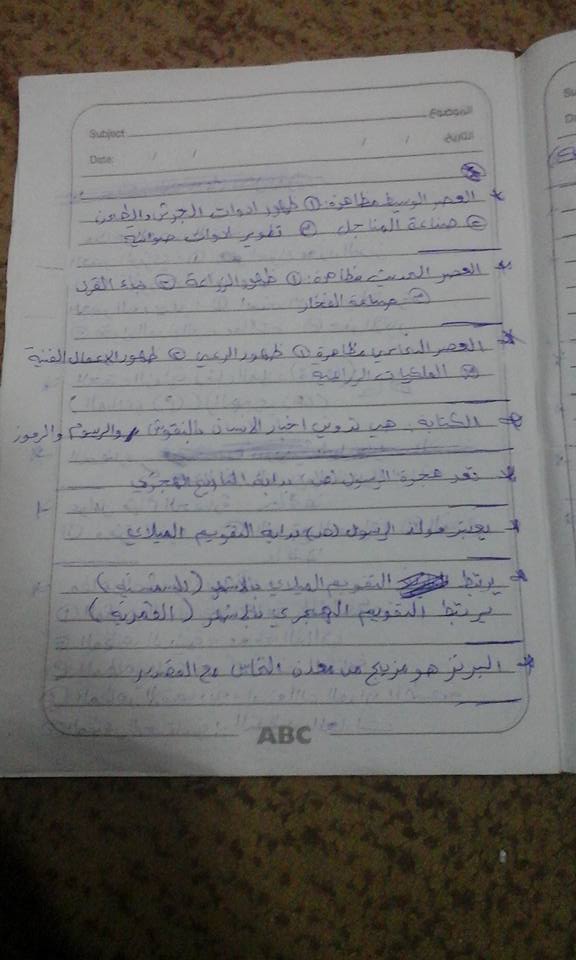 الموضوع
Subject
التاريخ / /
Date: / /
* العصر الوسيط مظاهرة: ① ظهور ادوات الجرش والطحن
② صناعة المناجل ③ تطوير ادوات صوانية
* العصر الحديث مظاهرة: ① ظهور الزراعة ② بناء القرى
③ صناعة الفخار
* العصر النحاسي مظاهرة: ① ظهور الرعي ② ظهور الاعمال الفنية
③ الملكيات الزراعية
* الكتابة: هي تدوين اخبار الانسان بالنقوش والرسوم والرموز
* تعد هجرة الرسول (ص) بداية التاريخ الهجري
* يعتبر مولد الرسول (ص) بداية التقويم الميلادي
* يرتبط التقويم الميلادي بالاشهر (الشمسية)
يرتبط التقويم الهجري بالاشهر (القمرية)
* البرنز هو مزيج من معدن النحاس مع القصدير
ABC